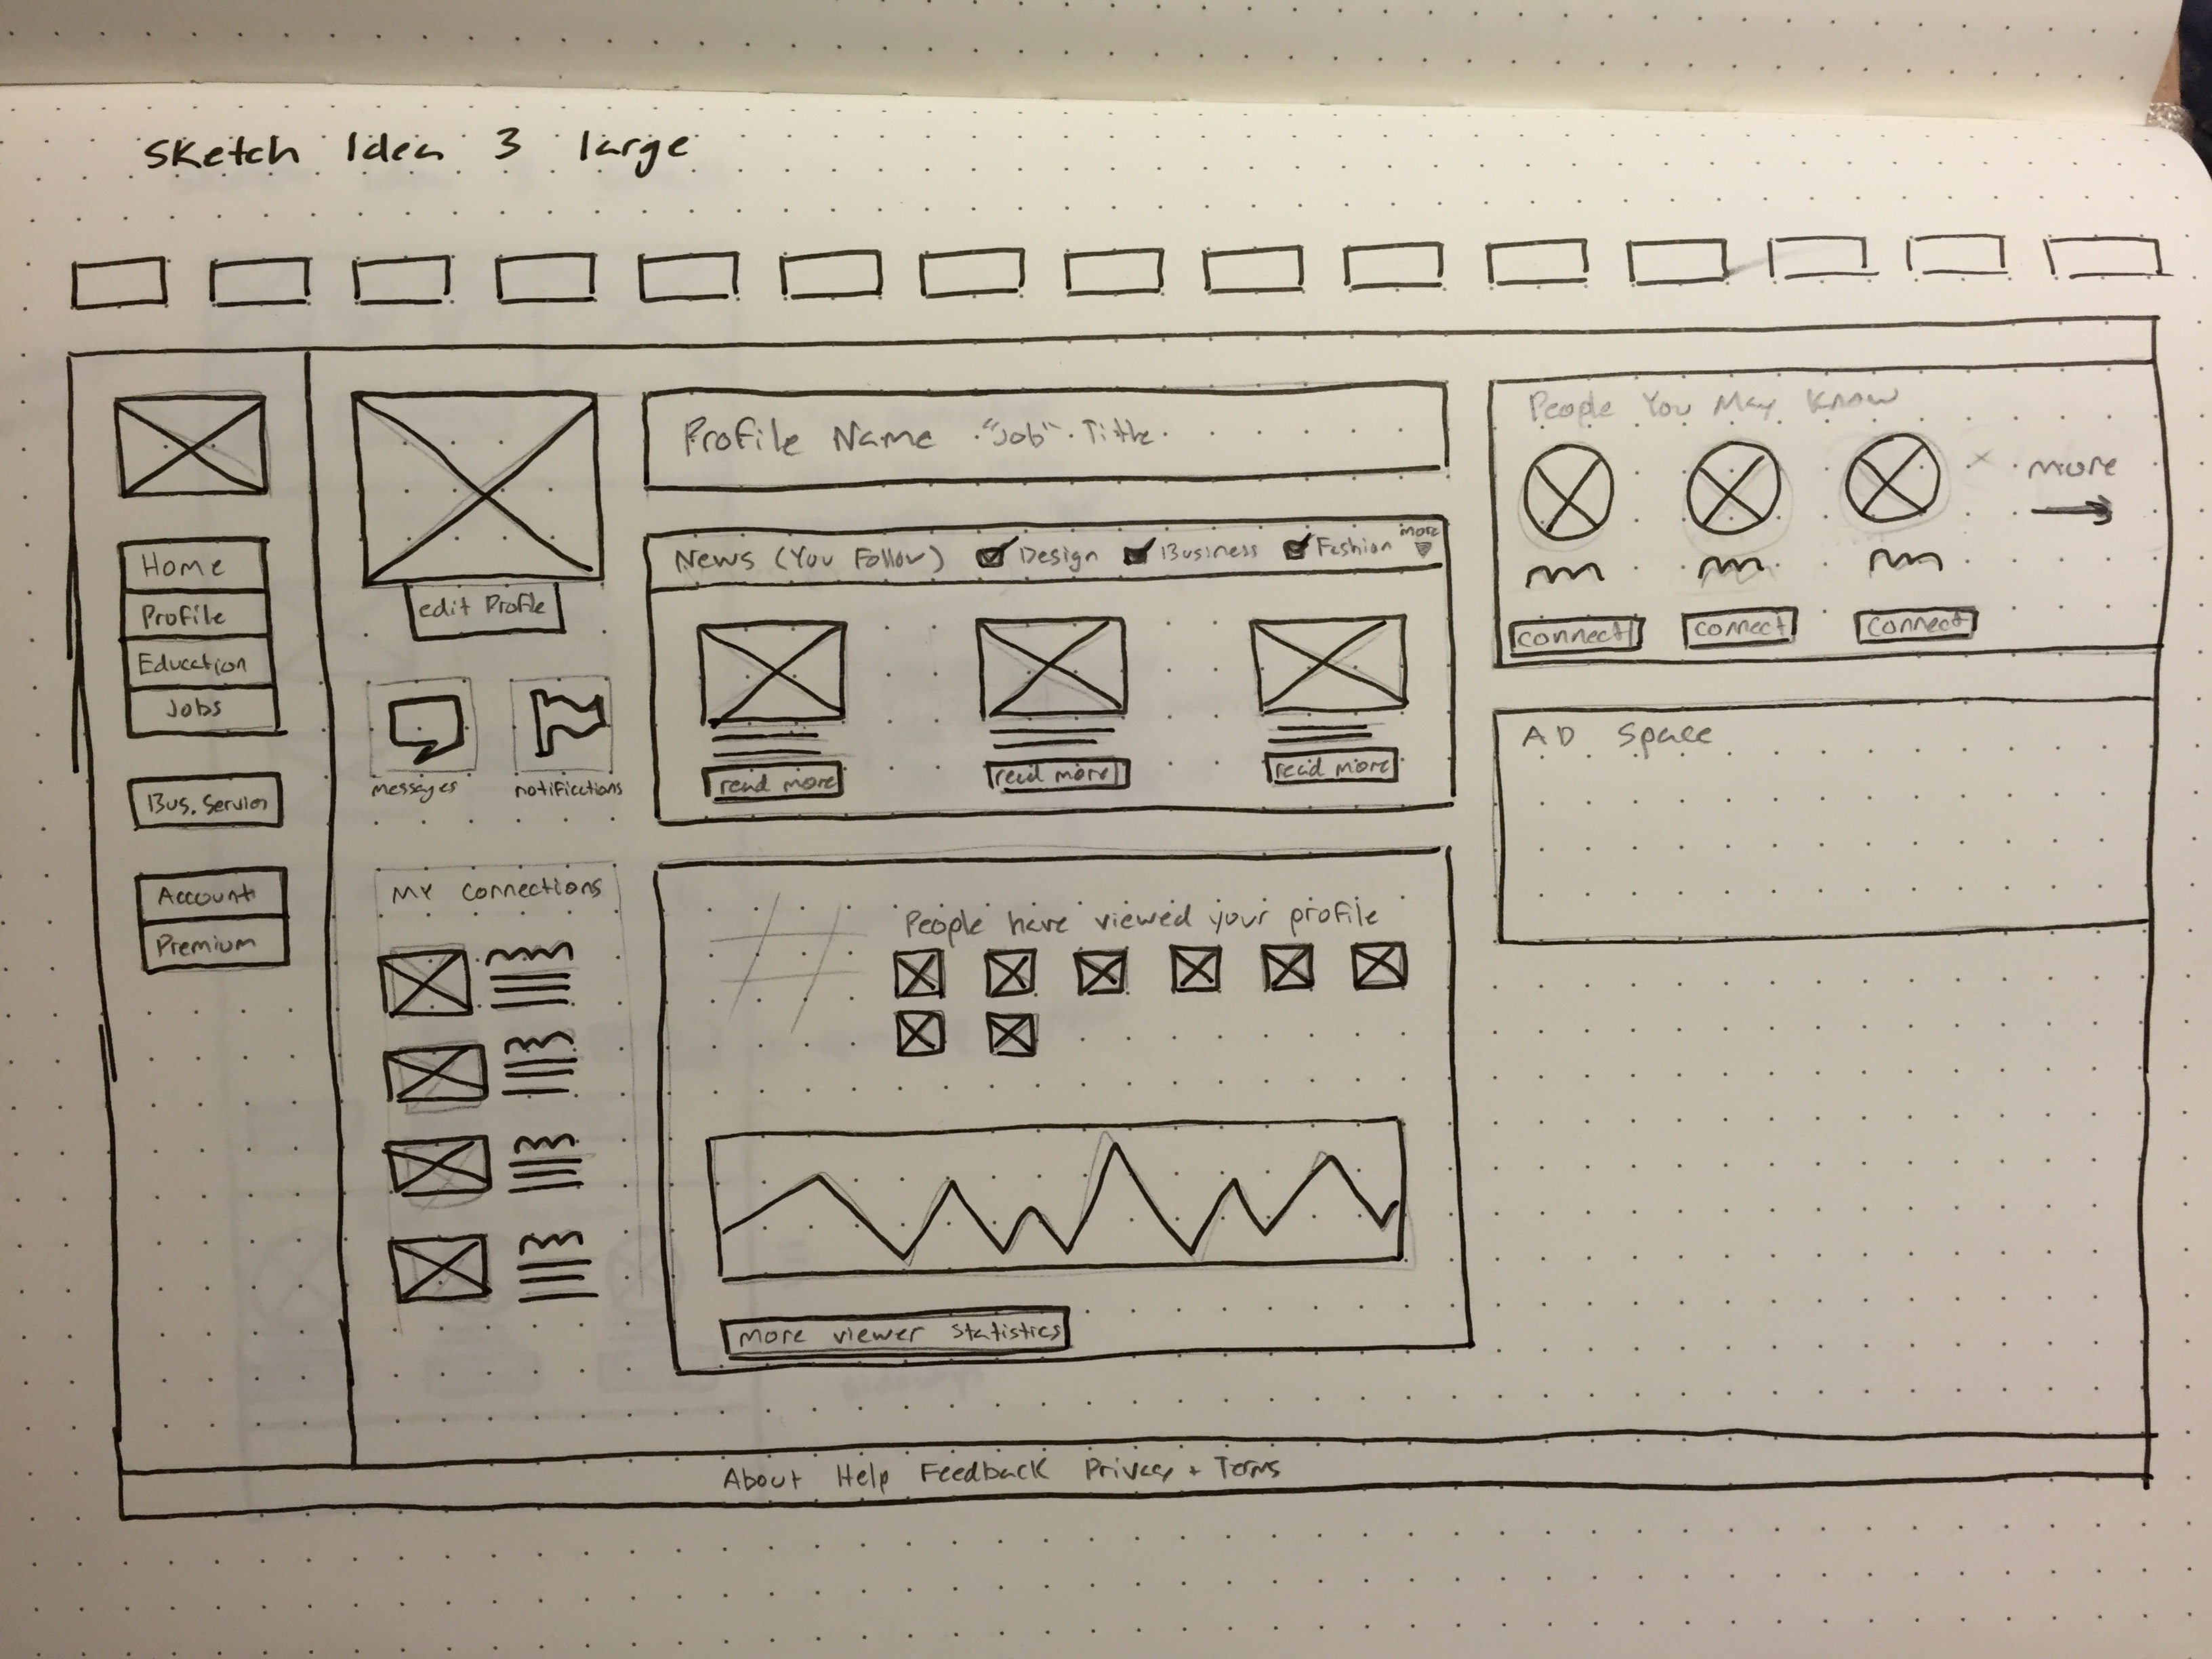 Sketch Idea 3 large
Home
Profile
Education
Jobs
Bus. Servies
Account
Premium
edit Profile
messages
notifications
My connections
Profile Name "Job" Title
News (You Follow) Design Business Fashion more
read more
read more
read more
People have viewed your profile
more viewer statistics
People You May Know
more
connect
connect
connect
AD Space
About Help Feedback Privacy + Terms